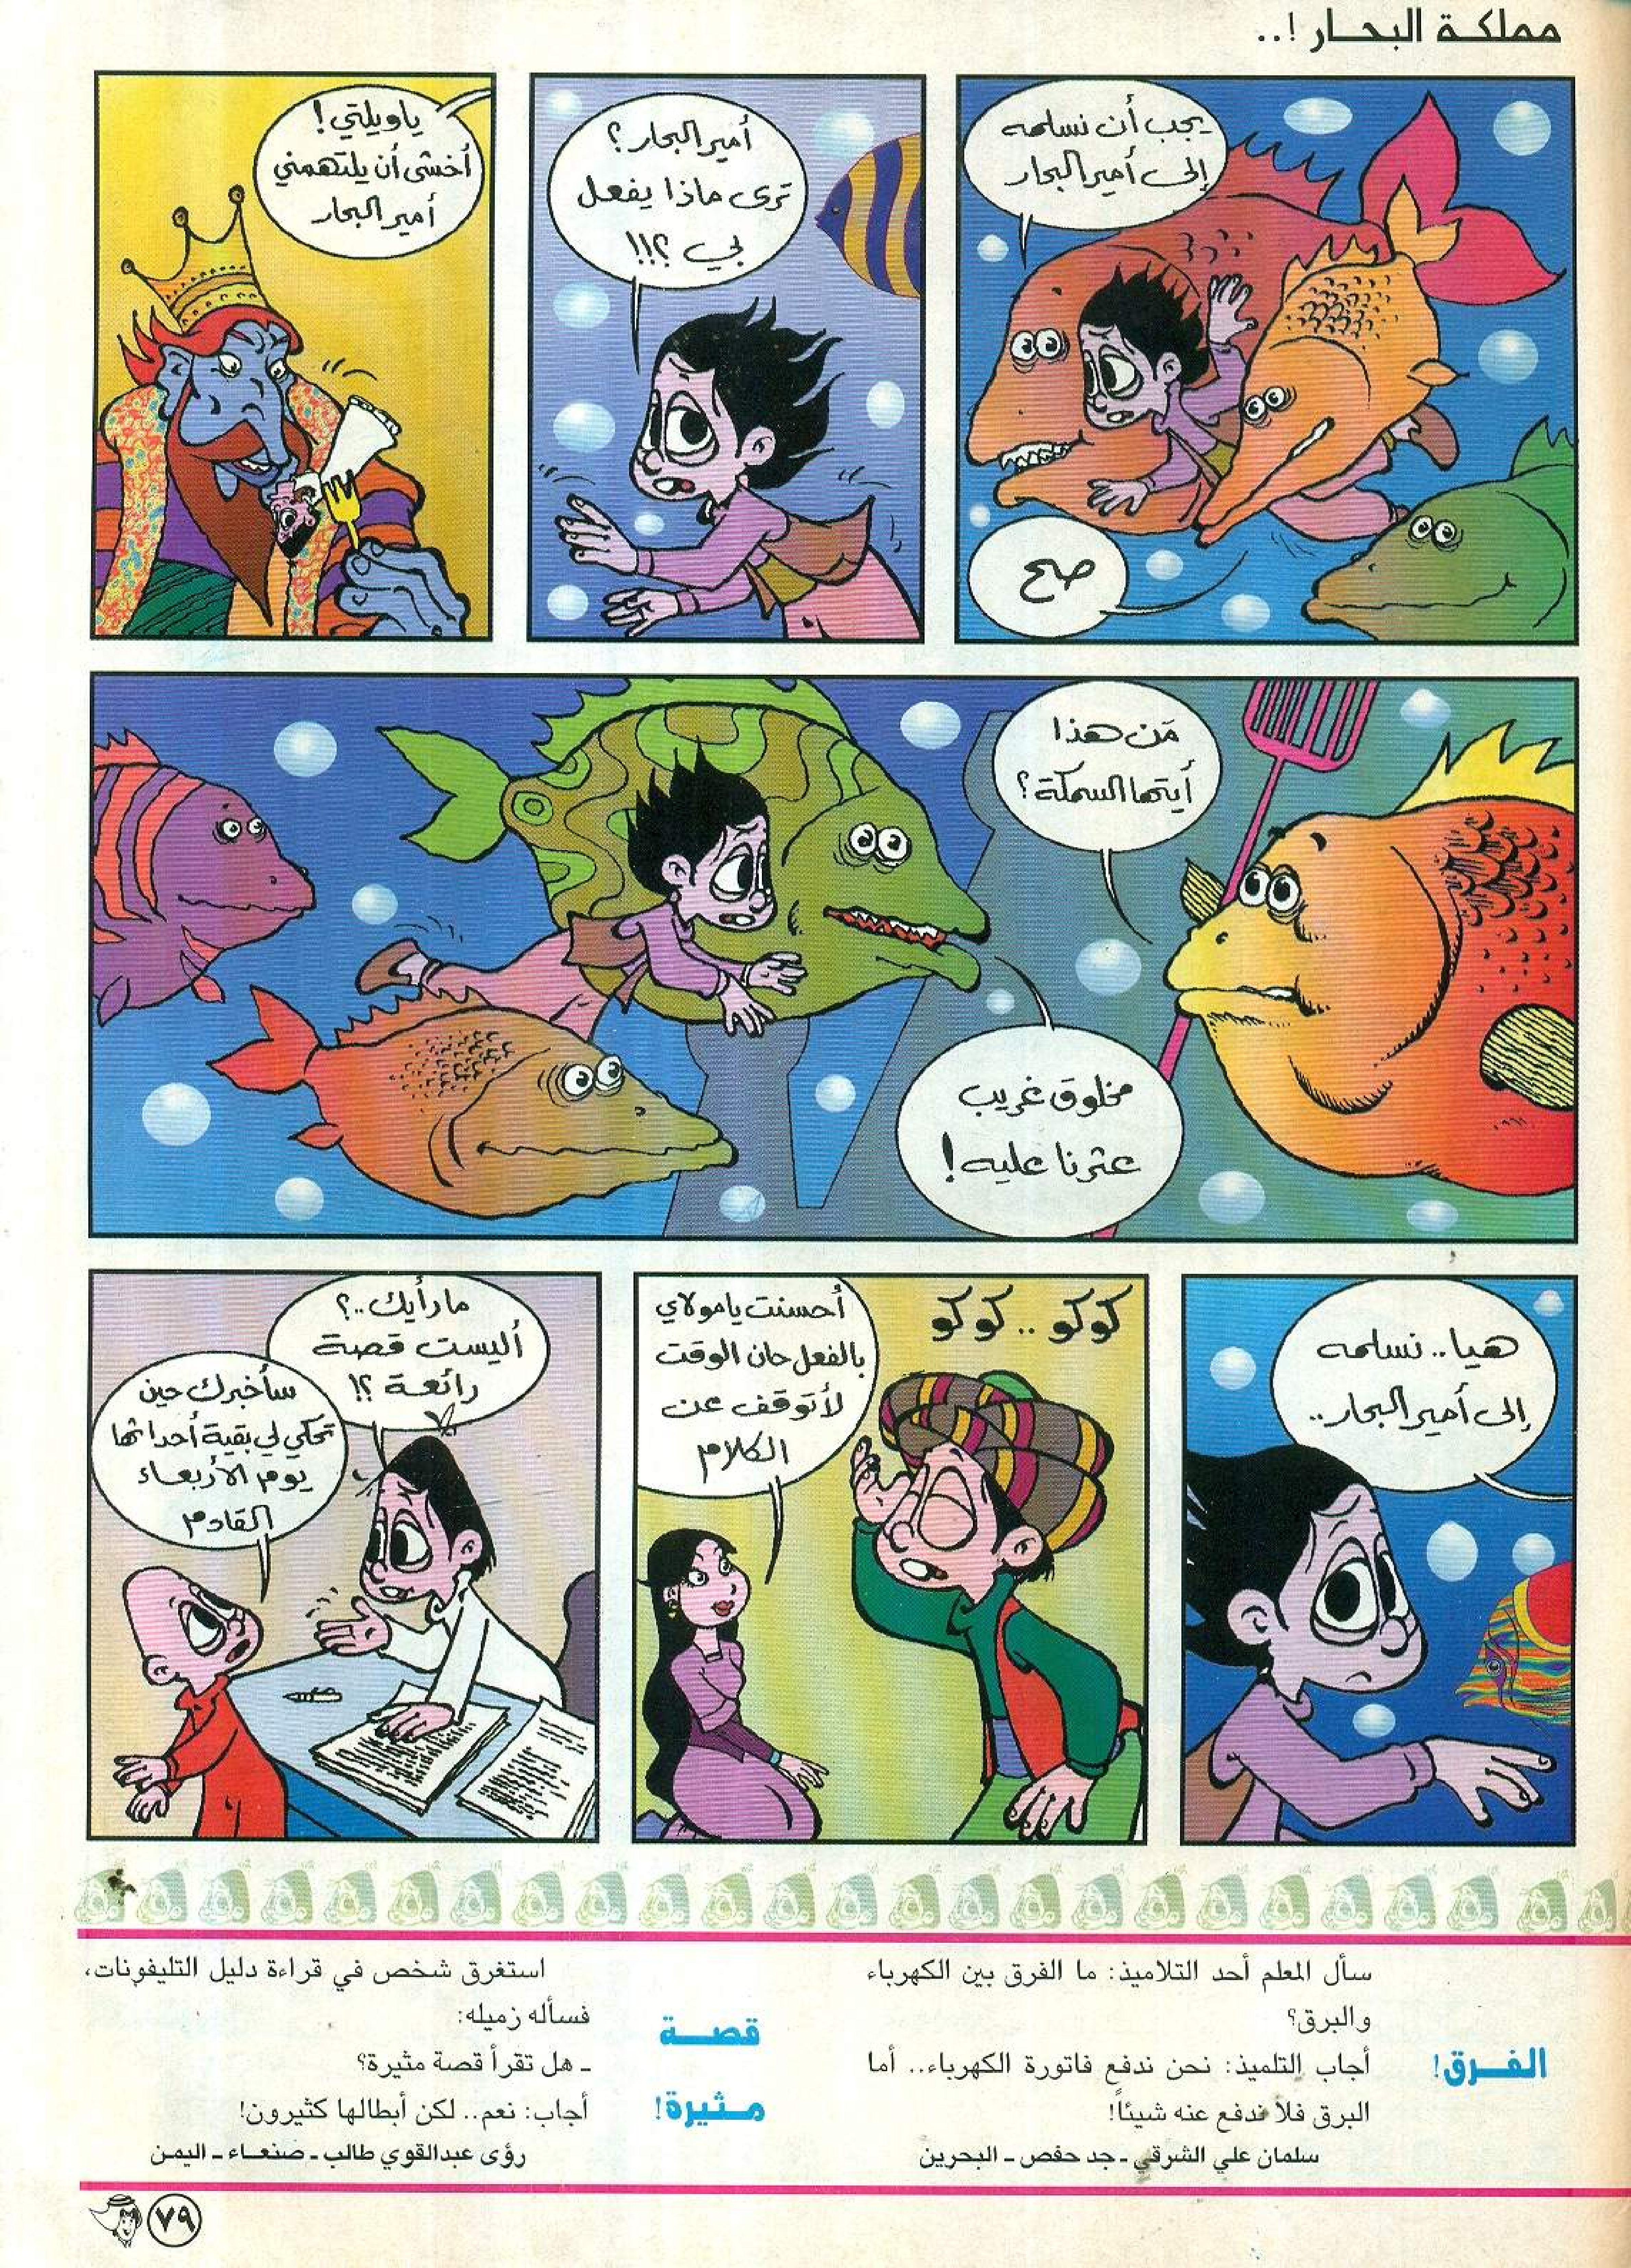 مملكة البحار !..
يجب أن نسلمه
إلى أمير البحار
صح
أمير البحار؟
ترى ماذا يفعل
بي ؟!!
ياويلتي!
أخشى أن يلتهمني
أمير البحار
مَن هذا
أيتها السمكة؟
مخلوق غريب
عثرنا عليه!
هيا.. نسلمه
إلى أمير البحار..
كوكو .. كوكو
أحسنت يامولاي
بالفعل حان الوقت
لأتوقف عن
الكلام
ما رأيك..؟
أليست قصة
رائعة ؟!
سأخبرك حين
تحكي لي بقية أحداثها
يوم الأربعاء
القادم
الفرق!
سأل المعلم أحد التلاميذ: ما الفرق بين الكهرباء
والبرق؟
أجاب التلميذ: نحن ندفع فاتورة الكهرباء.. أما
البرق فلا ندفع عنه شيئاً!
سلمان علي الشرقي ـ جد حفص ـ البحرين
قصة
مثيرة!
استغرق شخص في قراءة دليل التليفونات،
فسأله زميله:
ـ هل تقرأ قصة مثيرة؟
أجاب: نعم.. لكن أبطالها كثيرون!
رؤى عبدالقوي طالب ـ صنعاء ـ اليمن
٧٩